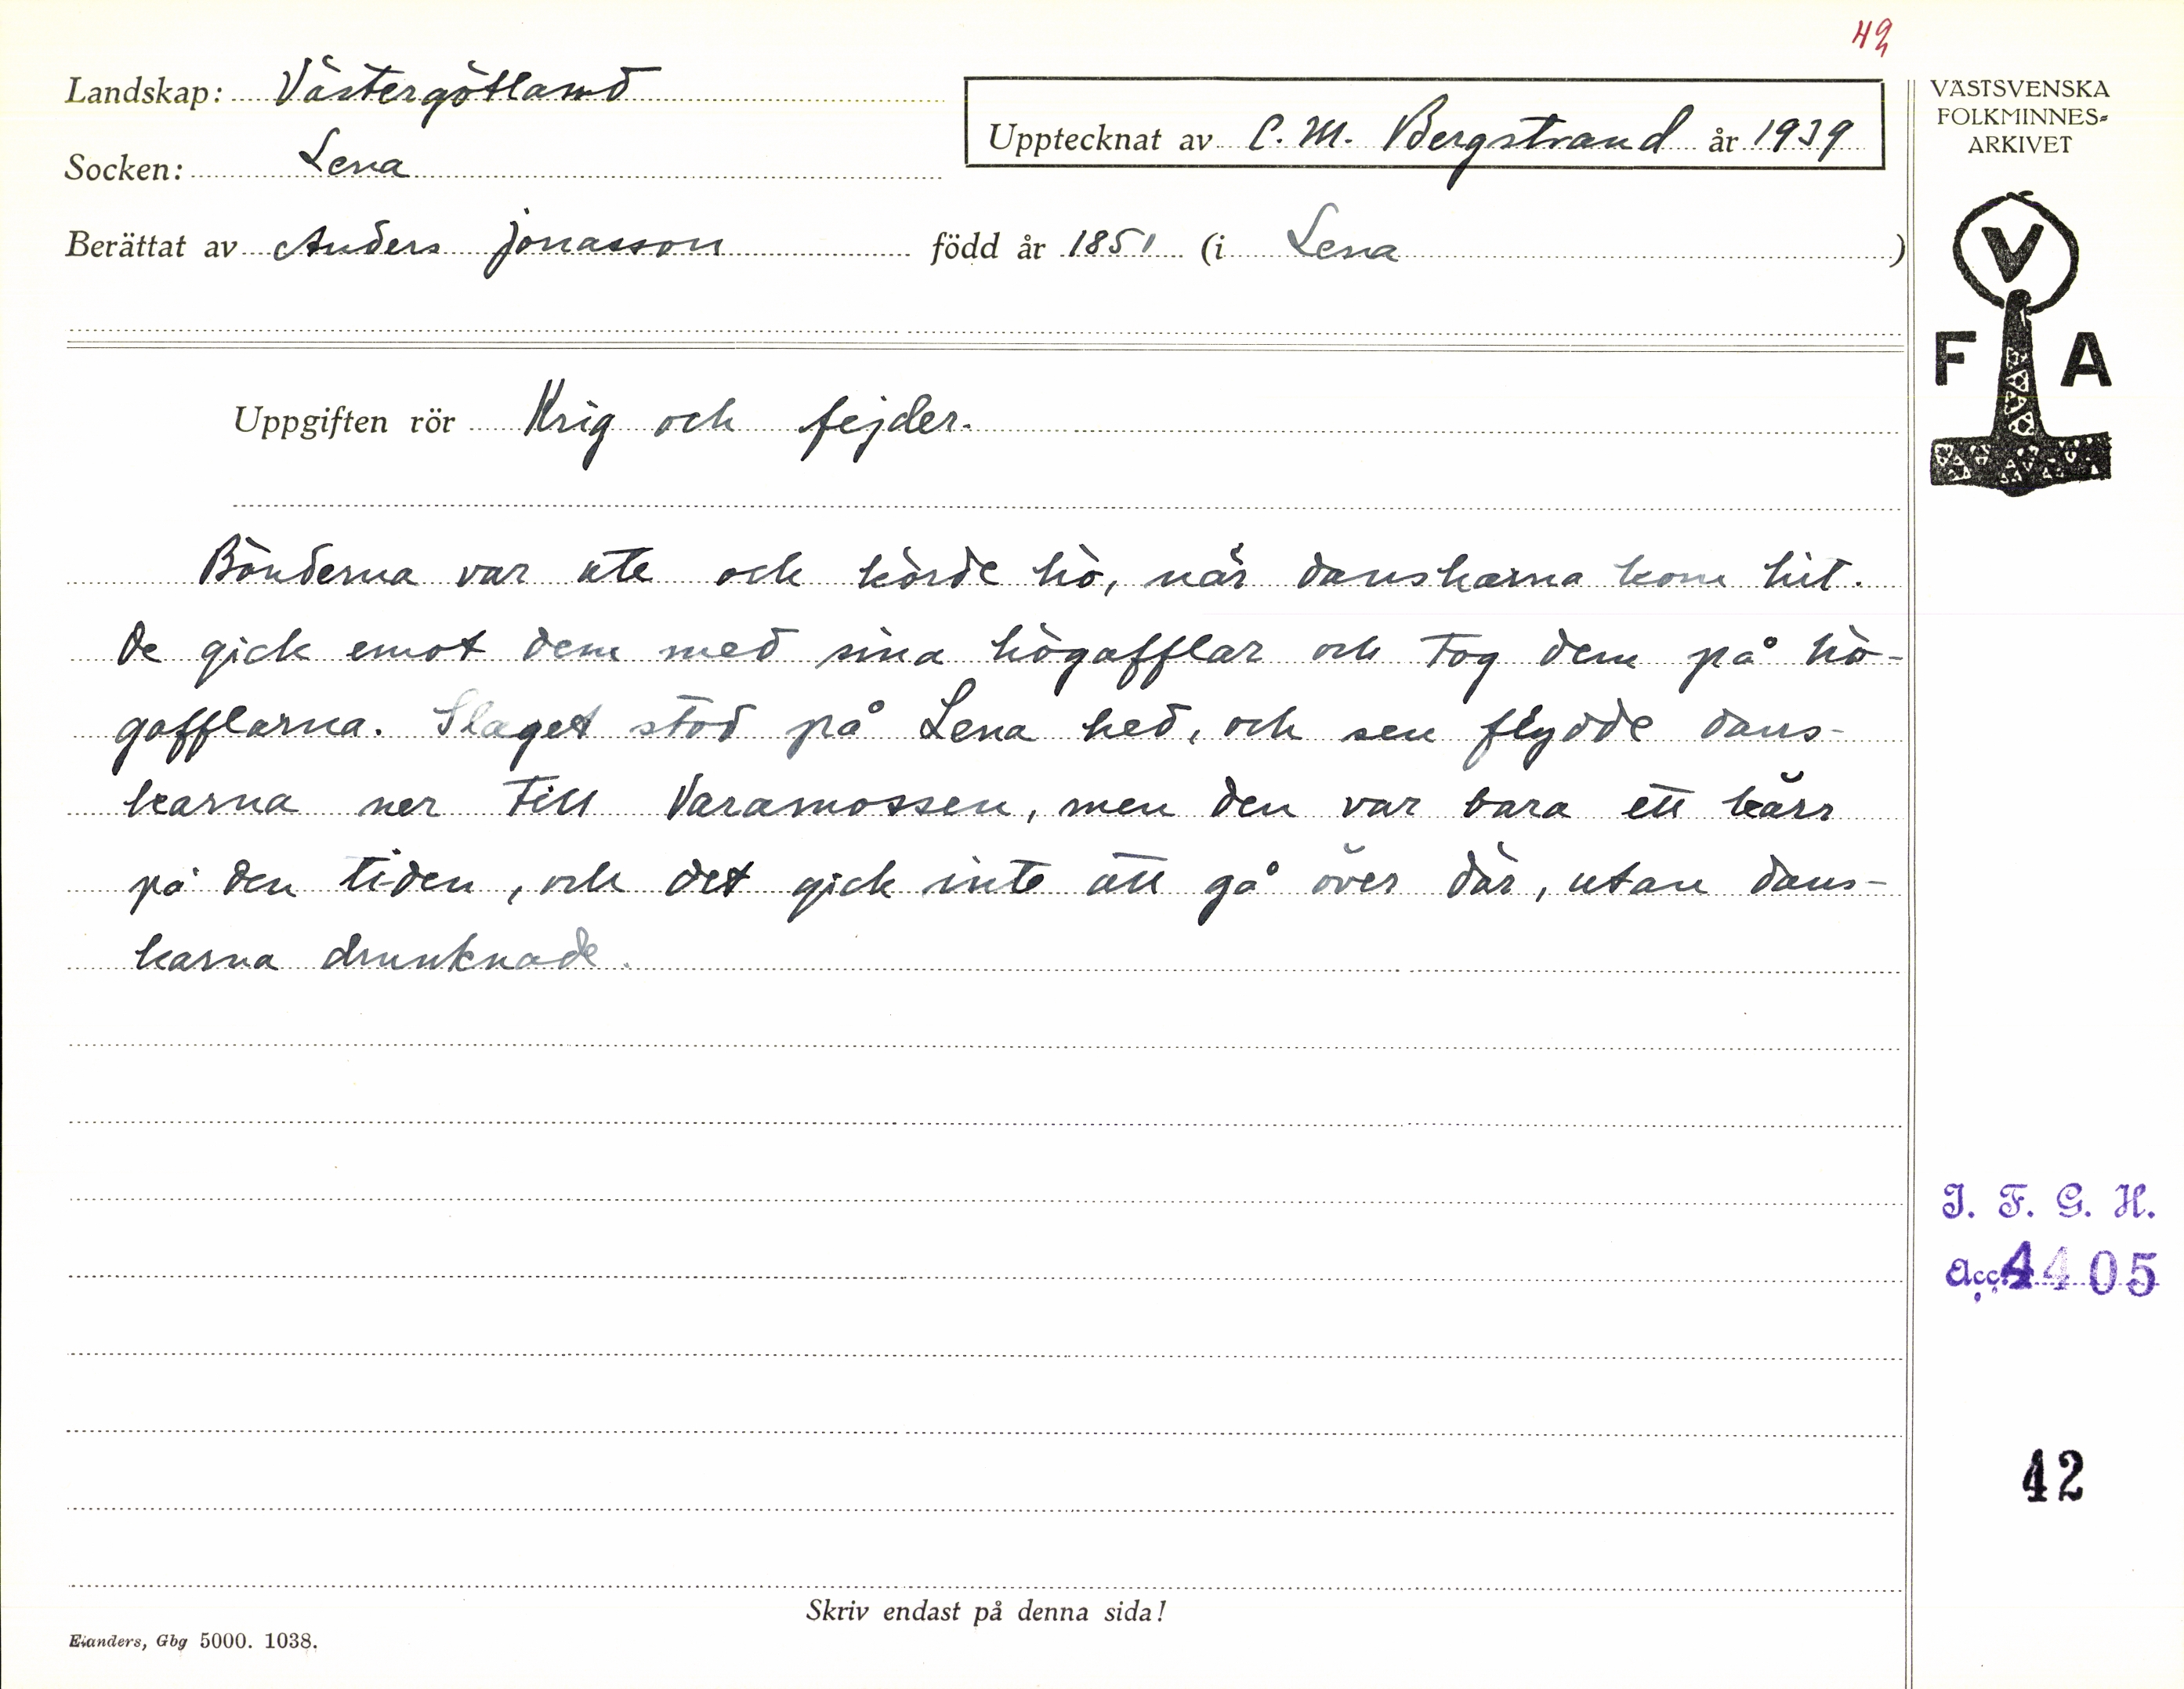 42
Landskap: Västergötland
Socken: Lena
Upptecknat av C. M. Bergstrand år 1939
Berättat av Anders Jonasson född år 1851 (i Lena)
VÄSTSVENSKA
FOLKMINNES=
ARKIVET
V
F A
Uppgiften rör Krig och fejder.
Bönderna var ute och körde hö, när danskarna kom hit.
De gick emot dem med sina högafflar och tog dem på hö-
gafflarna. Slaget stod på Lena hed, och sen flydde dans-
karna ner till Varamossen, men den var bara ett kärr
på den tiden, och det gick inte att gå över där, utan dans-
karna drunknade.
I. F. G. H.
Acc. 4405
42
Skriv endast på denna sida!
Elanders, Gbg 5000. 1038.